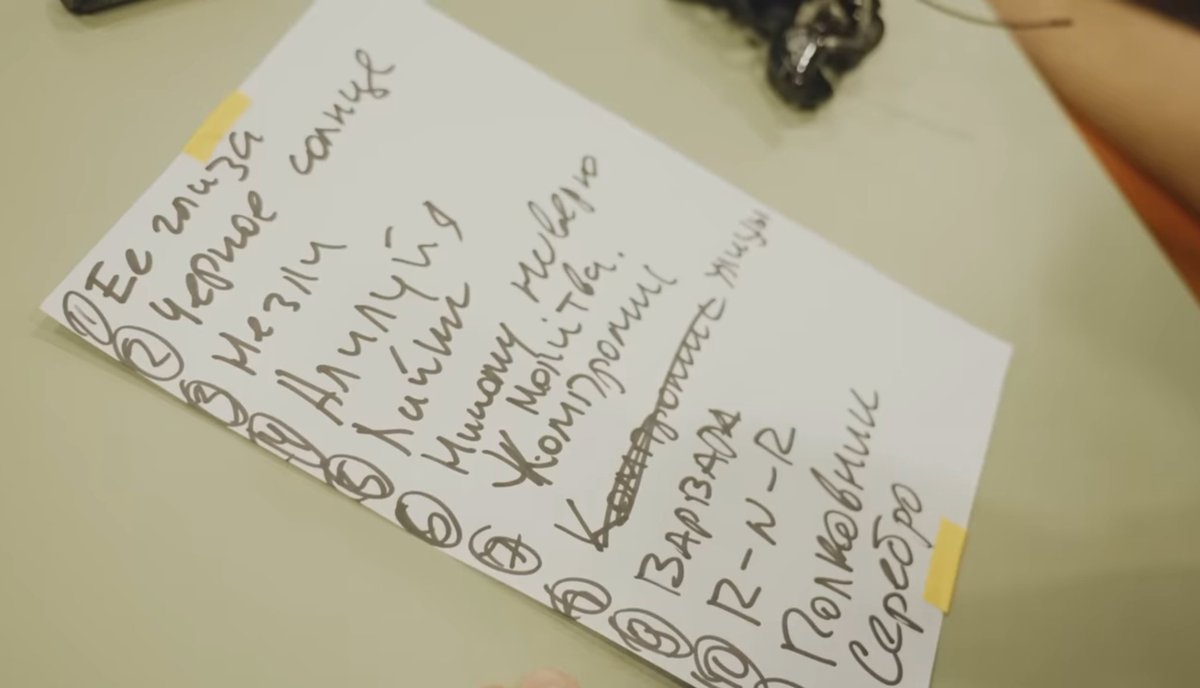 ① Ее глаза
② Черное солнце
③ Не зли
④ Алилуйя
⑤ Лайки
⑥ Никому не верю
Молитва.
⑦ Компромис
Компромис
⑨ ВАРВАРА
⑩ R-N-R
Полковник
Серебро